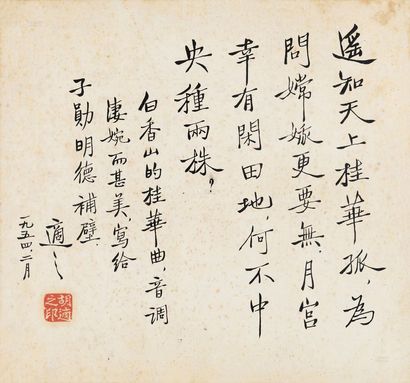 遥知天上桂華孤，為
問嫦娥更要無，月宮
幸有閑田地，何不中
央種兩株？
白香山的桂華曲，音調
淒婉而甚美，寫給
子勛明德補壁
適之
一九五四，二月
胡適
之印